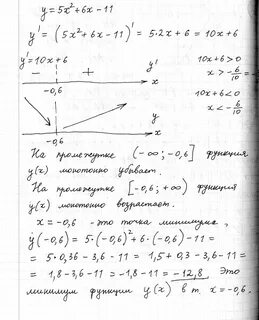 y = 5x² + 6x - 11
y' = (5x² + 6x - 11)' = 5·2x + 6 = 10x + 6
y' = 10x + 6
10x + 6 > 0
x > -6/10
10x + 6 < 0
x < -6/10
- + y'
-0,6 x
y
-0,6 x
На промежутке (-∞; -0,6] функция
y(x) монотонно убывает.
На промежутке [-0,6; +∞) функция
y(x) монотонно возрастает.
x = -0,6 - это точка минимума,
y(-0,6) = 5·(-0,6)² + 6·(-0,6) - 11 =
= 5·0,36 - 3,6 - 11 = 1,5 + 0,3 - 3,6 - 11 =
= 1,8 - 3,6 - 11 = -1,8 - 11 = -12,8. Это
минимум функции y(x) в т. x = -0,6.